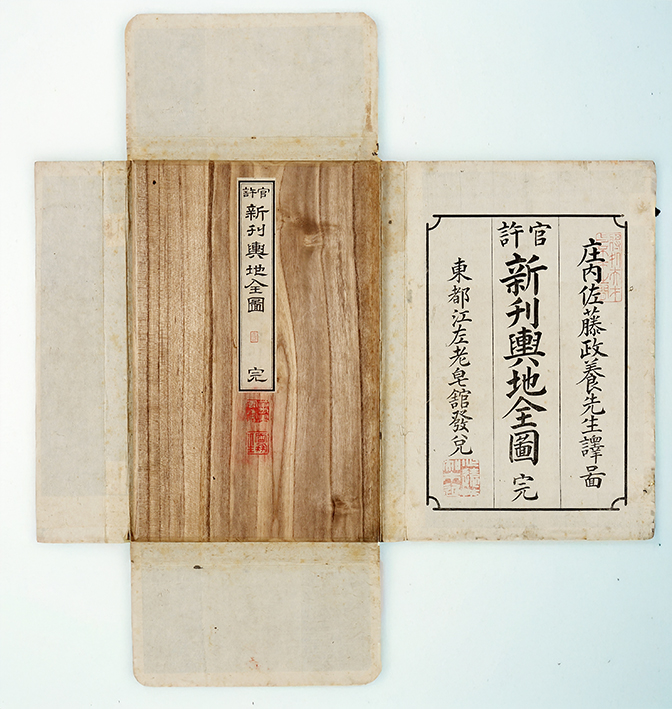 官許
新刊輿地全圖
完
庄内佐藤政養先生譯圖
官許
新刊輿地全圖 完
東都江左老皂館發兌